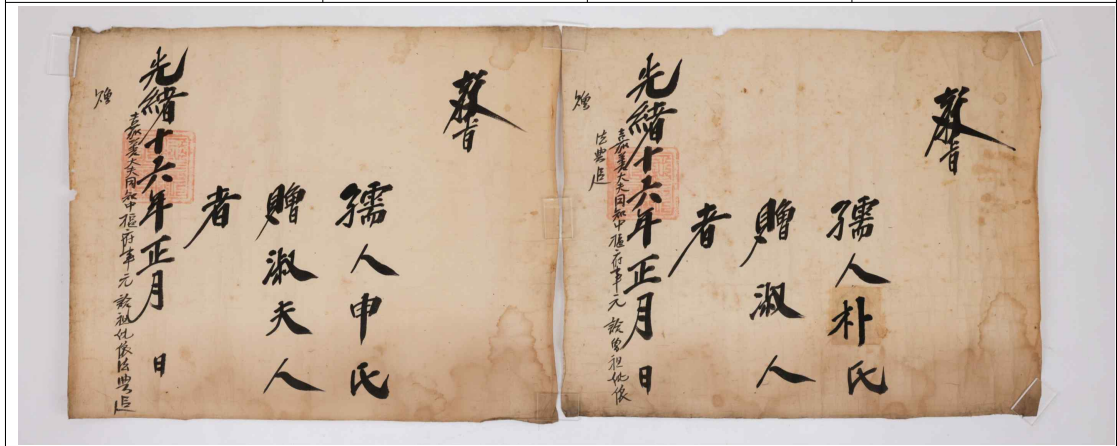 敎旨
孺人朴氏
贈淑人
者
光緖十六年正月 日
嘉義大夫同知中樞府事元 曾祖妣依
法典追
贈
敎旨
孺人申氏
贈淑夫人
者
光緖十六年正月 日
嘉義大夫同知中樞府事元 祖妣依法典追
贈